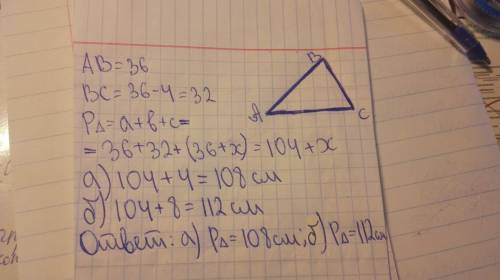 AB = 36
BC = 36-4 = 32
P∆ = a+b+c=
= 36+32+(36+x) = 104+x
a) 104+4 = 108 см
б) 104+8 = 112 см
Ответ: a) P∆ = 108 см; б) P∆ = 112 см
B
A
C